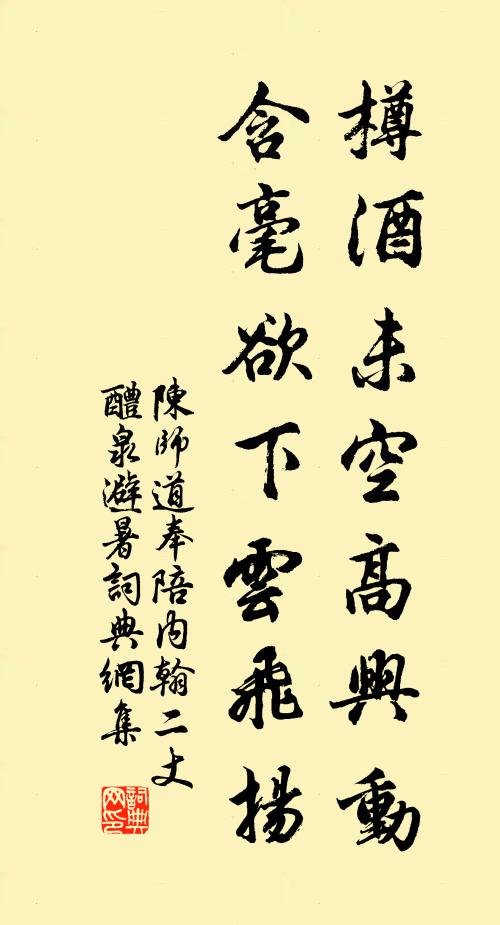 樽酒未空高興動
含毫欲下雲飛揚
陳師道奉陪內翰二丈
醴泉避暑詞典網集
詞典网印